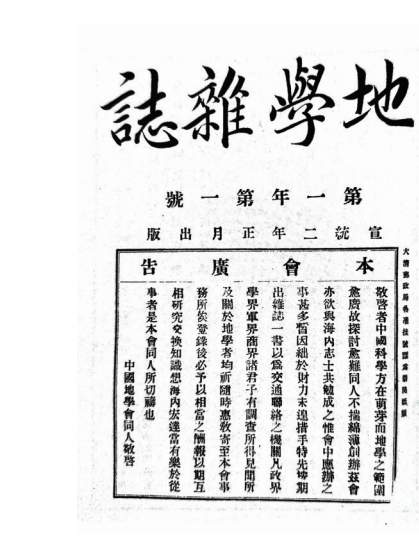 地學雜誌
第一年第一號
宣統二年正月出版
本會廣告
敬啓者中國科學方在萌芽而地學之範圍
愈廣故探討愈難同人不揣綿薄創辦茲會
亦欲與海內志士共勉成之惟會中應辦之
事甚多暫因絀於財力未遑措手特先按期
出雜誌一書以爲交通聯絡之機關凡政界
學界軍界商界諸君子有調查所得見聞所
及關於地學者均祈隨時惠敎寄至本會事
務所俟登錄後必予以相當之酬報以期互
相研究交換知識想海內宏達當有樂於從
事者是本會同人所切禱也
中國地學會同人敬啓